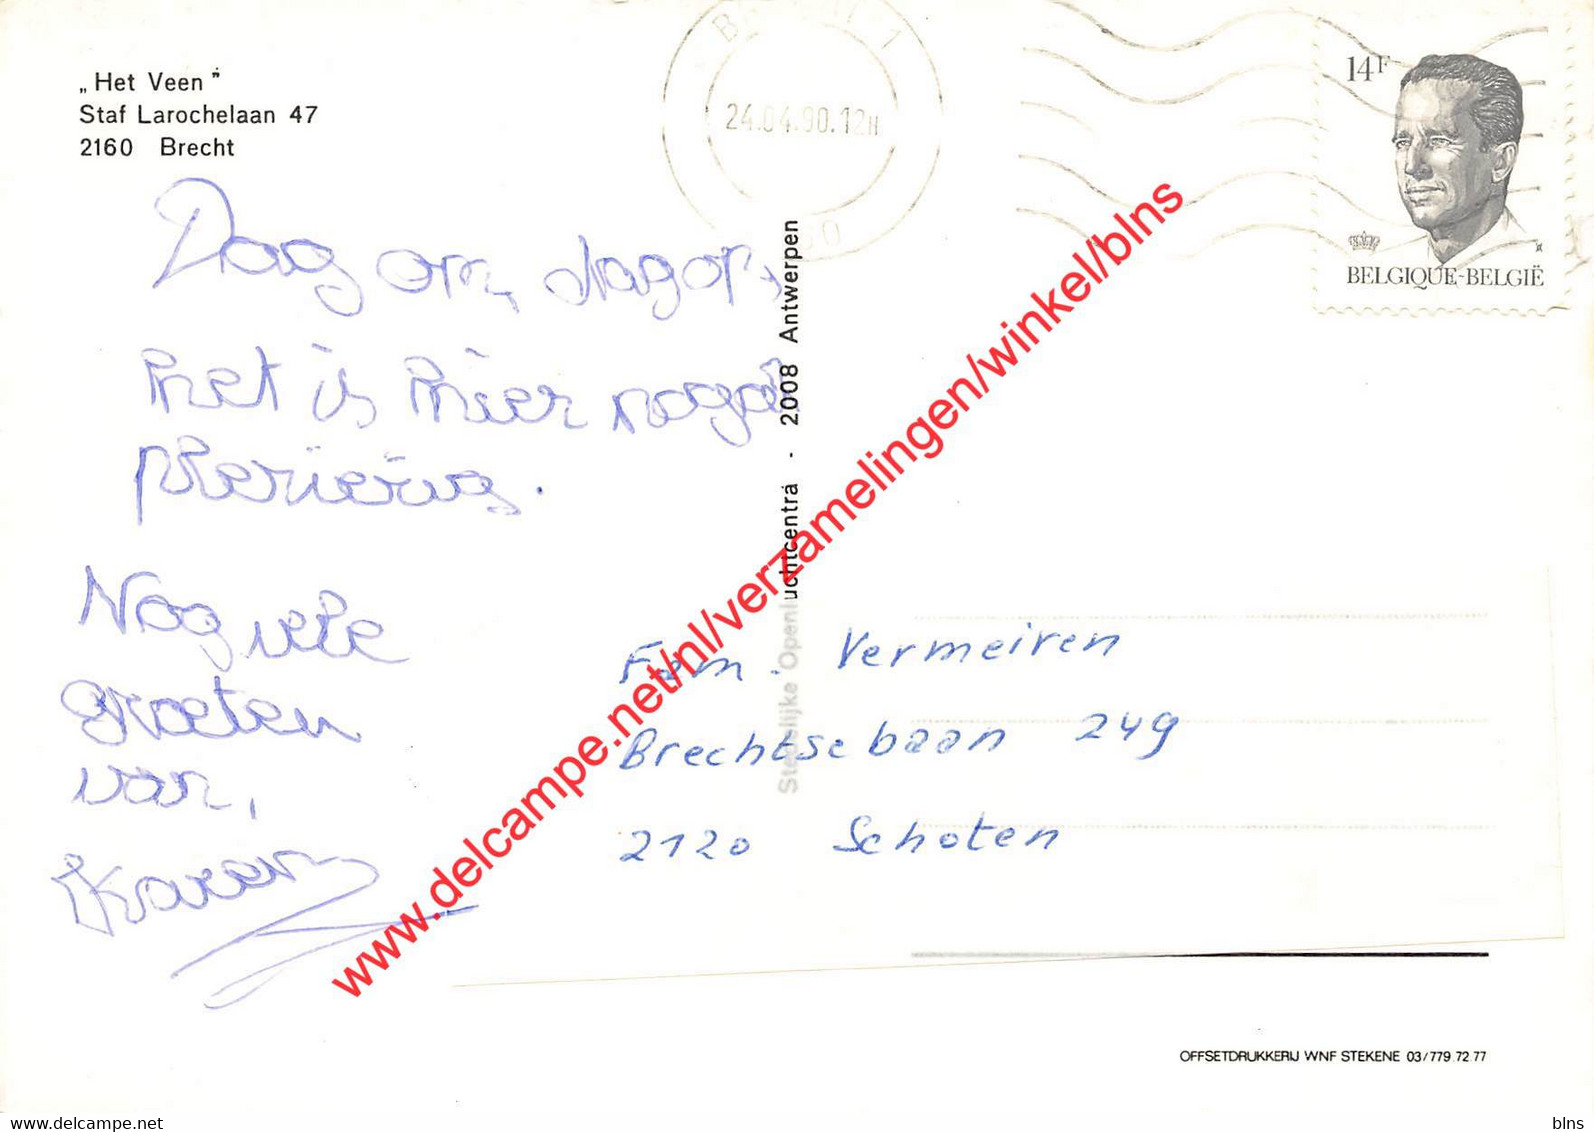 „Het Veen”
Staf Larochelaan 47
2160 Brecht
24.04.90.12H
14F
BELGIQUE-BELGIË
Dag
het is hier nogal
plezierig.
Nog vele
groeten
van,
Karen
Stedelijke Openluchtcentra - 2008 Antwerpen
Fam. Vermeiren
Brechtsebaan 249
2120 Schoten
OFFSETDRUKKERIJ WNF STEKENE 03/779.72.77
www.delcampe.net/nl/verzamelingen/winkel/blns
blns